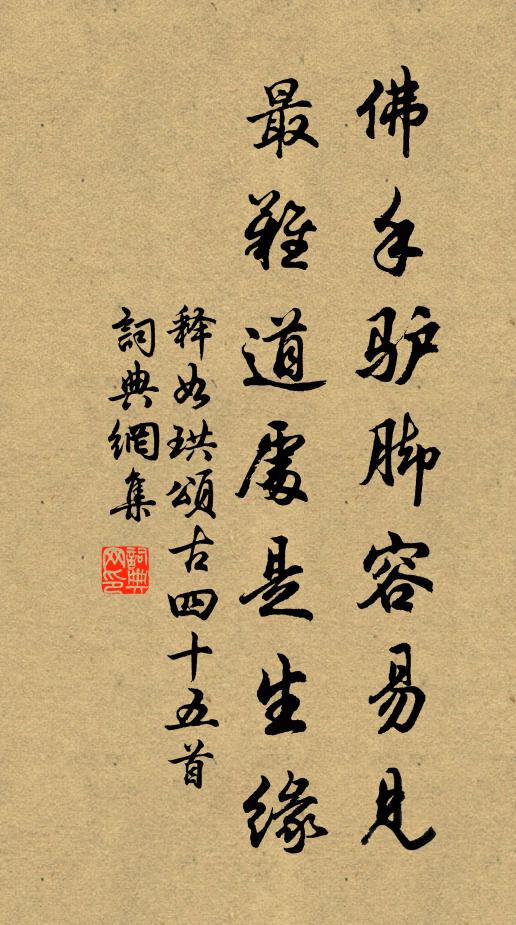 佛手驴脚容易見
最難道處是生緣
释如珙頌古四十五首
詞典網集
詞典网印